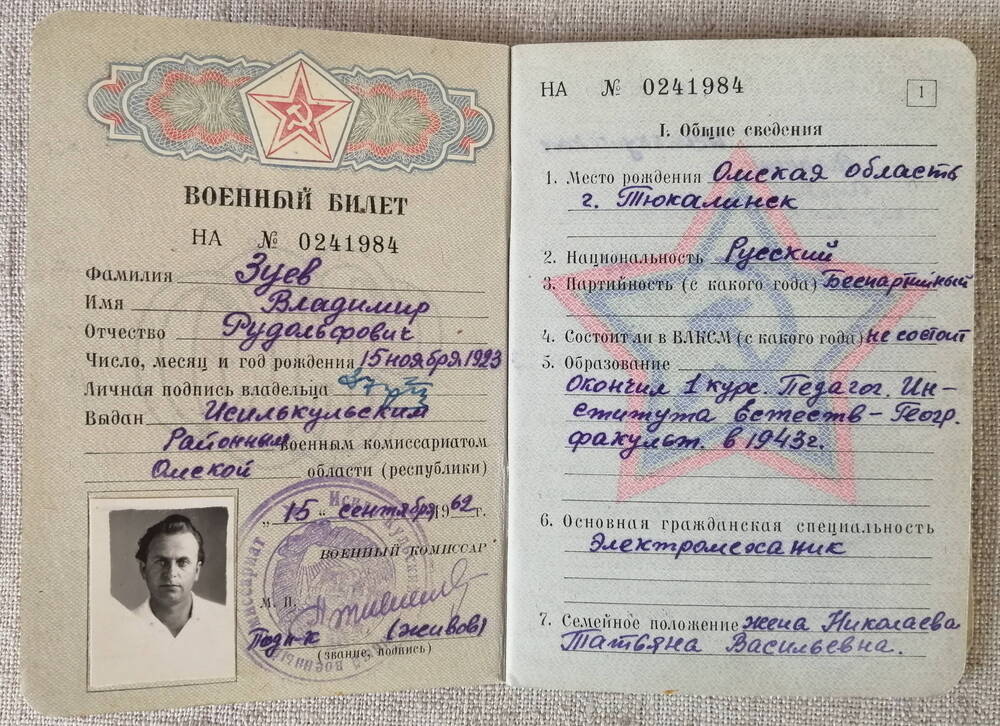 ВОЕННЫЙ БИЛЕТ
НА № 0241984
Фамилия Зуев
Имя Владимир
Отчество Рудольфович
Число, месяц и год рождения 15 ноября 1923
Личная подпись владельца
Выдан Исилькульским
Районным военным комиссариатом
Омской области (республики)
„15" сентября 1962 г.
ВОЕННЫЙ КОМИССАР
М. П.
Подп-к (Живов)
(звание, подпись)
НА № 0241984
1
I. Общие сведения
1. Место рождения Омская область
г. Тюкалинск
2. Национальность Русский
3. Партийность (с какого года) Беспартийный
4. Состоит ли в ВЛКСМ (с какого года) не состоит
5. Образование
Окончил 1 курс. Педагог. Ин-
ститута Естеств-Геогр.
факульт. в 1943г.
6. Основная гражданская специальность
Электромеханик
7. Семейное положение жена Николаева
Татьяна Васильевна.